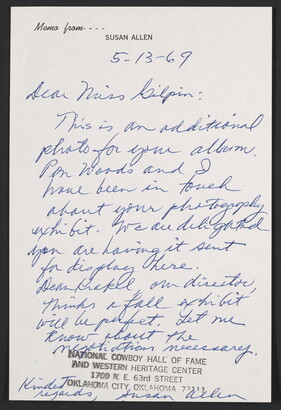 Memo from - - -
SUSAN ALLEN
5-13-69
Dear Miss Gilpin:
This is an additional
photo for your album.
Pam Woods and I
have been in touch
about your photography
exhibit. We are delighted
you are having it sent
for display here.
Dean Krakel, our director,
thinks a fall exhibit
will be perfect. Let me
know about the
negotiations necessary.
NATIONAL COWBOY HALL OF FAME
AND WESTERN HERITAGE CENTER
1700 N. E. 63rd STREET
OKLAHOMA CITY, OKLAHOMA 73111
Kindest
regards, Susan Allen